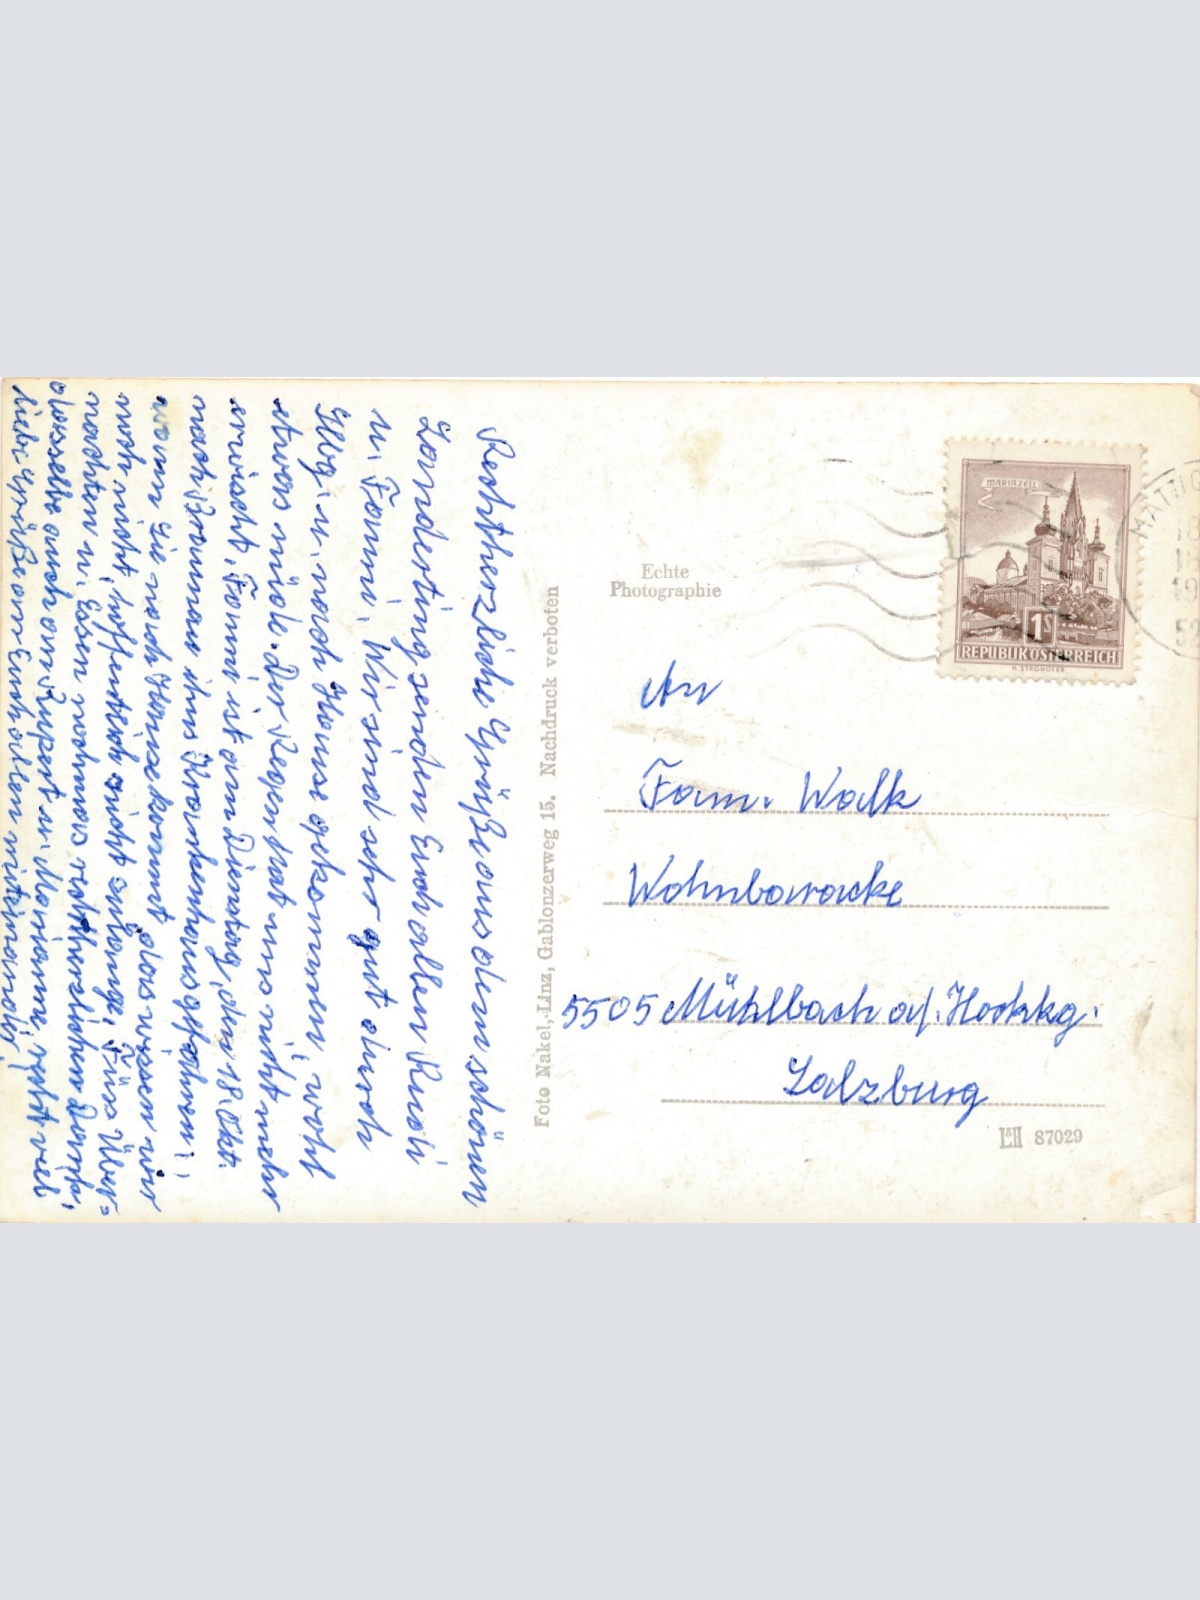 Recht herzliche Grüße aus dem schönen
Landerting senden Euch allen Rudi
u. Fanni. Wir sind sehr gut durch
Glbg. u. nach Hause gekommen, wohl
etwas müde. Der Regen hat uns nicht mehr
erwischt. Fanni ist am Dienstag, den 18. Okt.
nach Braunau ins Krankenhaus gefahren,
wann Sie nach Hause kommt das wissen wir
noch nicht, hoffentlich nicht zulange, Fürs Über=
nachten u. Essen nochmals recht herzlichen Dank,
dasselbe auch an Rupert u. Marianne, recht viele
liebe Grüße an Euch allen miteinander!
Foto Nakel, Linz, Gablonzerweg 15. Nachdruck verboten
Echte
Photographie
MARIAZELL
1S
REPUBLIK ÖSTERREICH
H. STROHOFER
MATTIG
18
An
Fam. Walk
Wohnbaracke
5505 Mühlbach a/. Hochkg.
Salzburg
87029